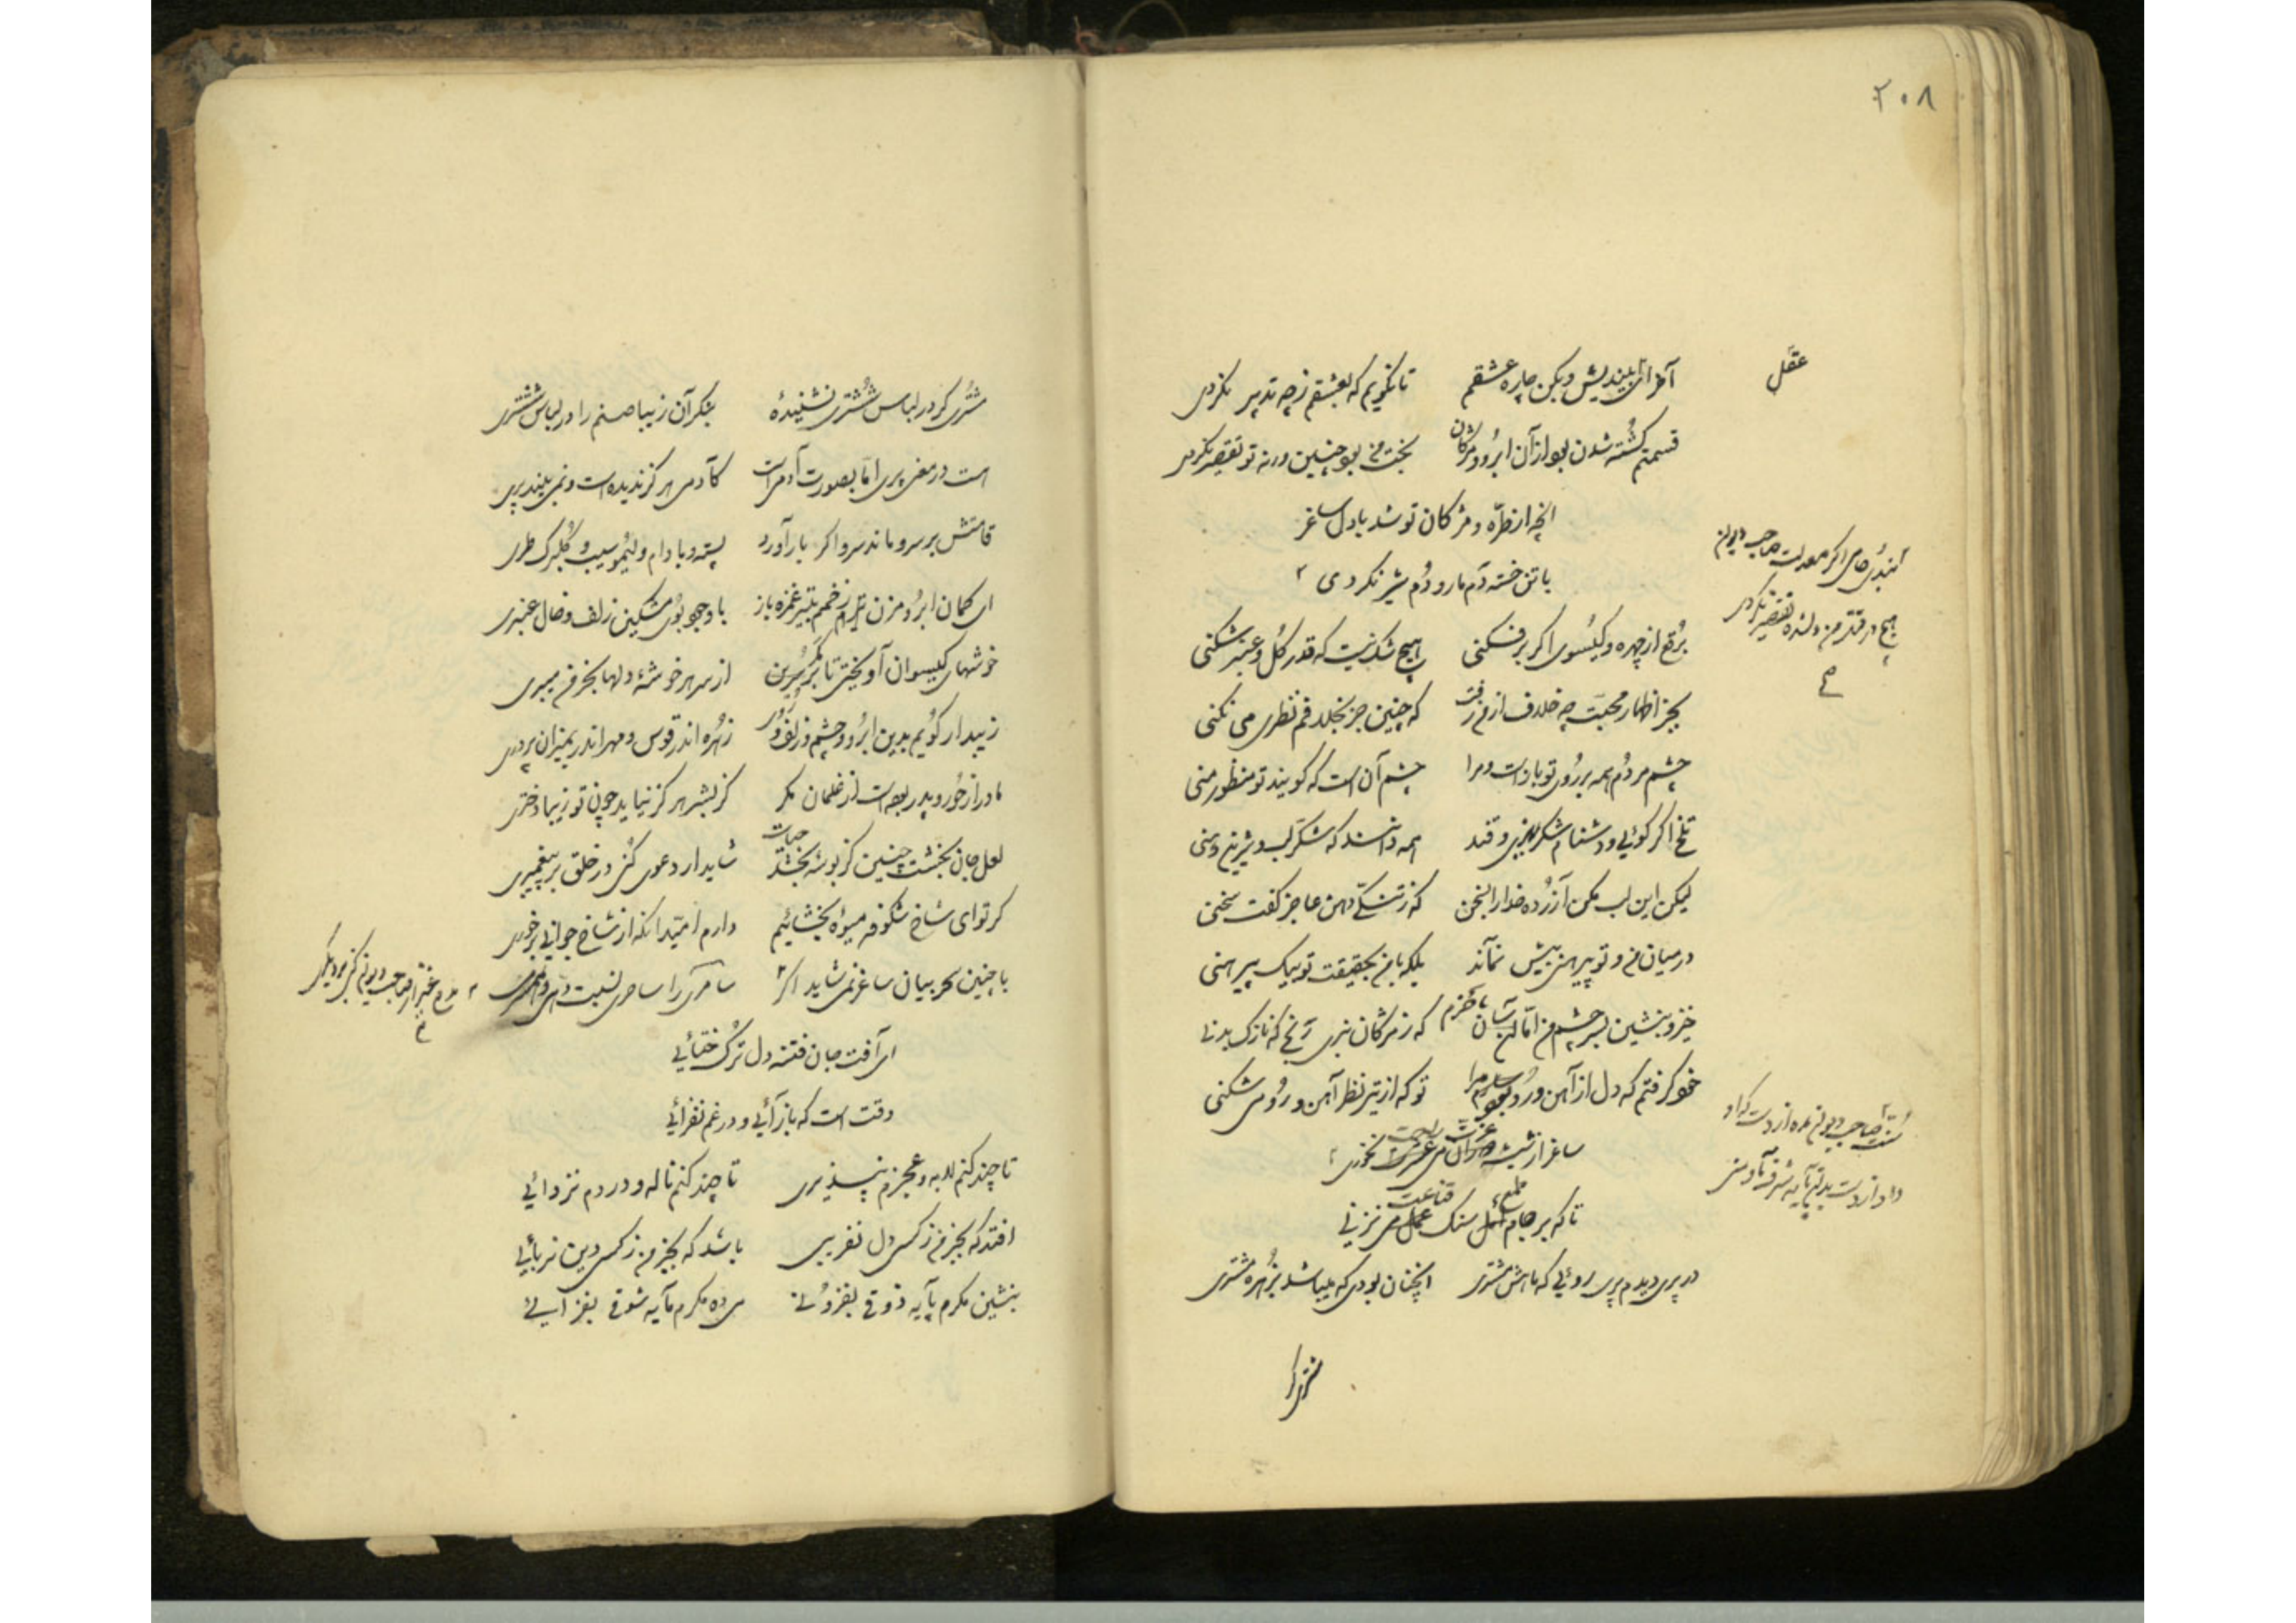 ۲۰۸
عقل
آخر ای بیندیش و بکن چاره عشقم تا نگویم که بعشقم ز چه تدبیر نکردی
قسمتم کشته شدن بود از آن ابرو و مژکان بخت من بود چنین ورنه تو تقصیر نکردی
آنچه از طرّه و مژکان تو شد با دل ساغر
با تن خسته دم مار و دُم شیر نکردی
هیچ در قتل من تقصیر نکردی
برقع از چهره و کیسوی اکر برفکنی هیچ شک نیست که قدر کُل و عنبر شکنی
بجز اظهار محبت چه خلاف از من رفت که چنین جز بخلافم نظری می نکنی
چشم مردُم همه بر رُوی تو باز است و مرا چشم آن است که کویند تو منظور منی
تلخ اکر کوئی و دشنام شکر ریزی و قند همه دانند که شکّر لب و شیرین دهنی
لیکن این لب مکن آزرده خدا را بسخن که ز تنکّی دهن عاجز کفت سخنی
درمیان من و تو پیرهنی بیش نماند بلکه با من بحقیقت تو بیک پیرهنی
خیز و بنشین بسر چشم من امّا که ز مژکان نبری رنجی که نازک بدنی
خود کرفتم که دل از آهن و رُو بود مرا تو که از تیر نظر آهن و رُو می شکنی
ساغر از شیشه می نخوری
تا که بر جام سنک قناعت نزنی
در پری دیدم پری روئی که ماهش مشتری آنچنان بودی که میباشد بزُهره مشتری
مشتری کر
مشتری کر در لباس شُشتری نشنیدهٔ بنکر آن زیبا صنم را در لباس شُشتری
است در معنی پری امّا بصورت آدم است کآدمی هر کز ندیده است و نمی بیند پری
قامتش بر سرو ماند سرو اکر بار آورد پسته و بادام و لیمو سیب و کُلبرک طری
ای کمان ابرُو مزن زخمم بتیر غمزه باز با وجود بُوی مشکین زلف و خال عنبری
خوشهای کیسوان آویختی تا بر سرین از سر هر خوشهٔ دلها بخرمن میبری
زیبد ار کویم بدین ابرُو و چشم و زلف و رُو زُهره اندر قوس و مهر اندر بمیزان پروری
مادر از حُور و پدر بوده است از غلمان مکر کز بشر هر کز نیاید چون تو زیبا دختری
لعل جان بخشت چنین کز بوسه بخشد حیات شاید ار دعوی کنی در خلق بر پیغمبری
کر تو ای شاخ شکوفه میوهٔ بخشائیم دارم امّید آنکه از شاخ جوانی برخوری
با چنین سحر بیان ساغر نمی شاید اکر سامری را ساحری نسبت دهی
ای آفت جان فتنه دل تُرک ختائی
وقت است که باز آئی و در غم نفزائی
تا چند کنم لابه و عجزم نپذیری تا چند کنم ناله و دردم نزدائی
افتد که بجز من ز کسی دل نفریبی باشد که بجز من ز کسی دین نربائی
بنشین مکرم پآیه ذوقی بفزودُنی می ده مکرم مآیه شوقی بفزائی